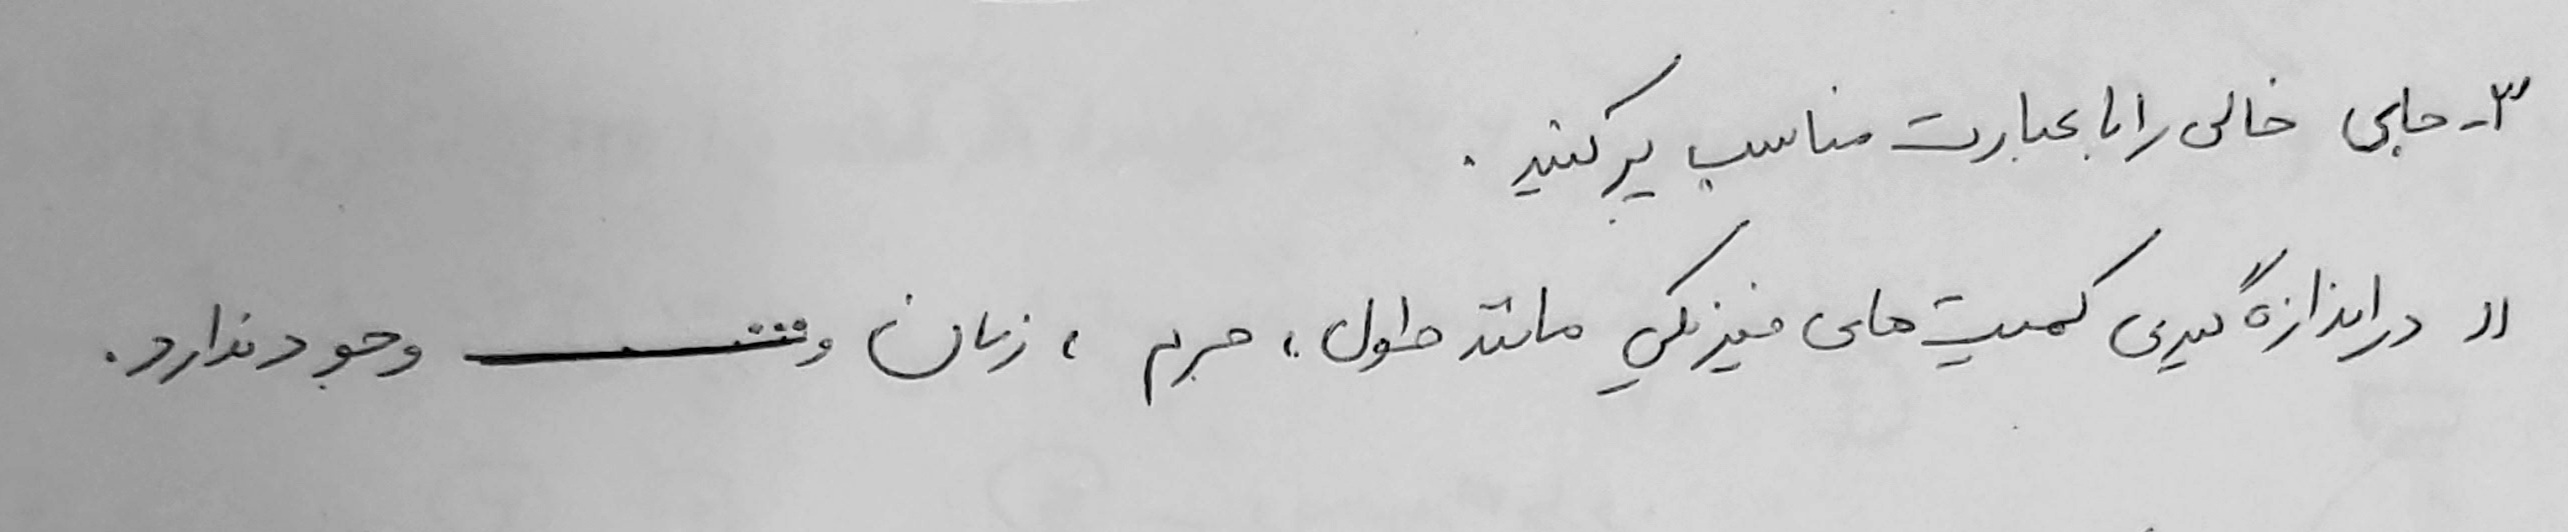 ۳- جای خالی را با عبارت مناسب پر کنید .
" در اندازه گیری کمیت های فیزیکی مانند طول ، جرم ، زمان و ... ــــــــ وجود ندارد .